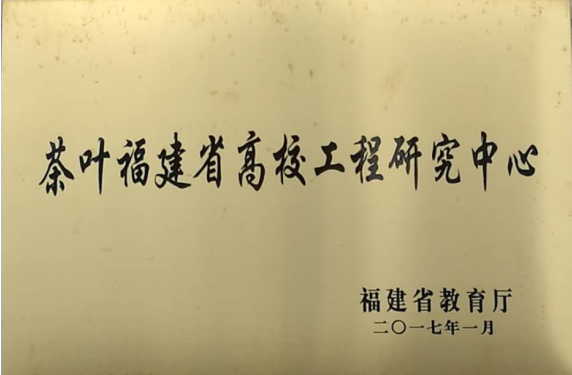 茶叶福建省高校工程研究中心
福建省教育厅
二〇一七年一月